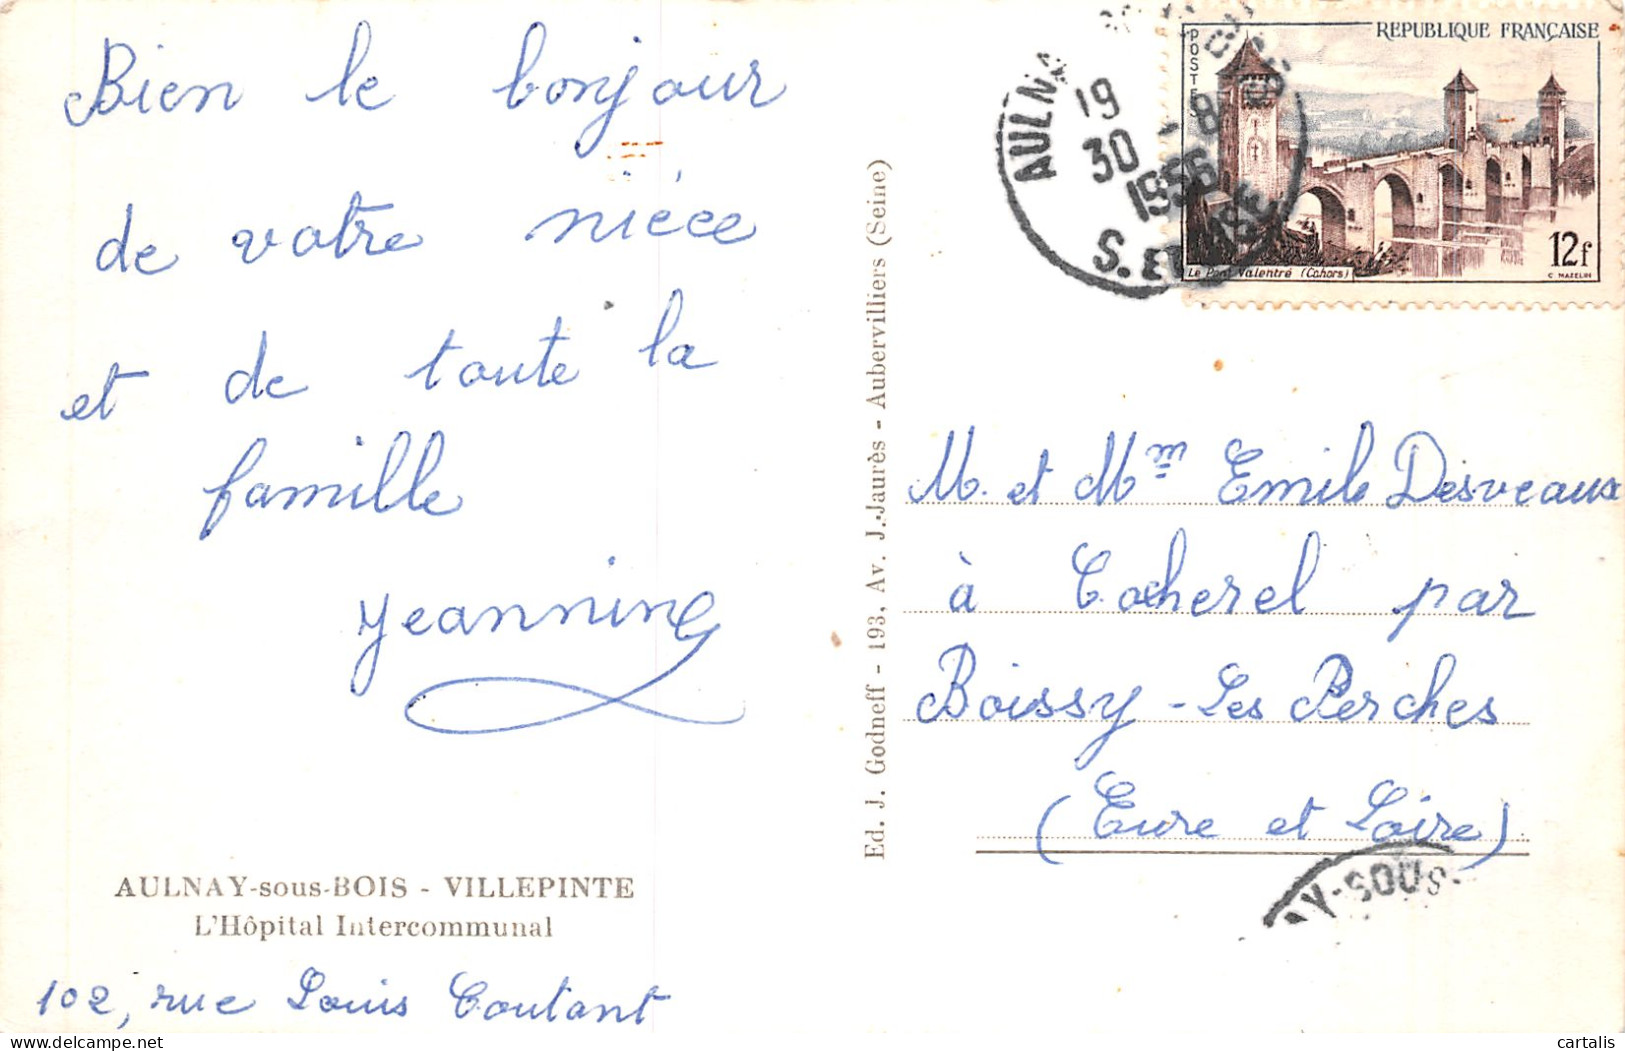 Bien le bonjour
de votre nièce
et de toute la
famille
Jeannine
AULNAY-sous-BOIS - VILLEPINTE
L'Hôpital Intercommunal
102, rue Louis Coutant
Ed. J. Godneff - 193, Av. J.-Jaurès - Aubervilliers (Seine)
19
30 - 8
1956
S. ET OISE
REPUBLIQUE FRANÇAISE
POSTES
12f
Le Pont Valentré (Cahors)
C. MAZELIN
M. et Mme Emile Desveaux
à Cocherel par
Boissy-Les Perches
(Eure et Loire)
AY-SOUS-
cartalis
delcampe.net